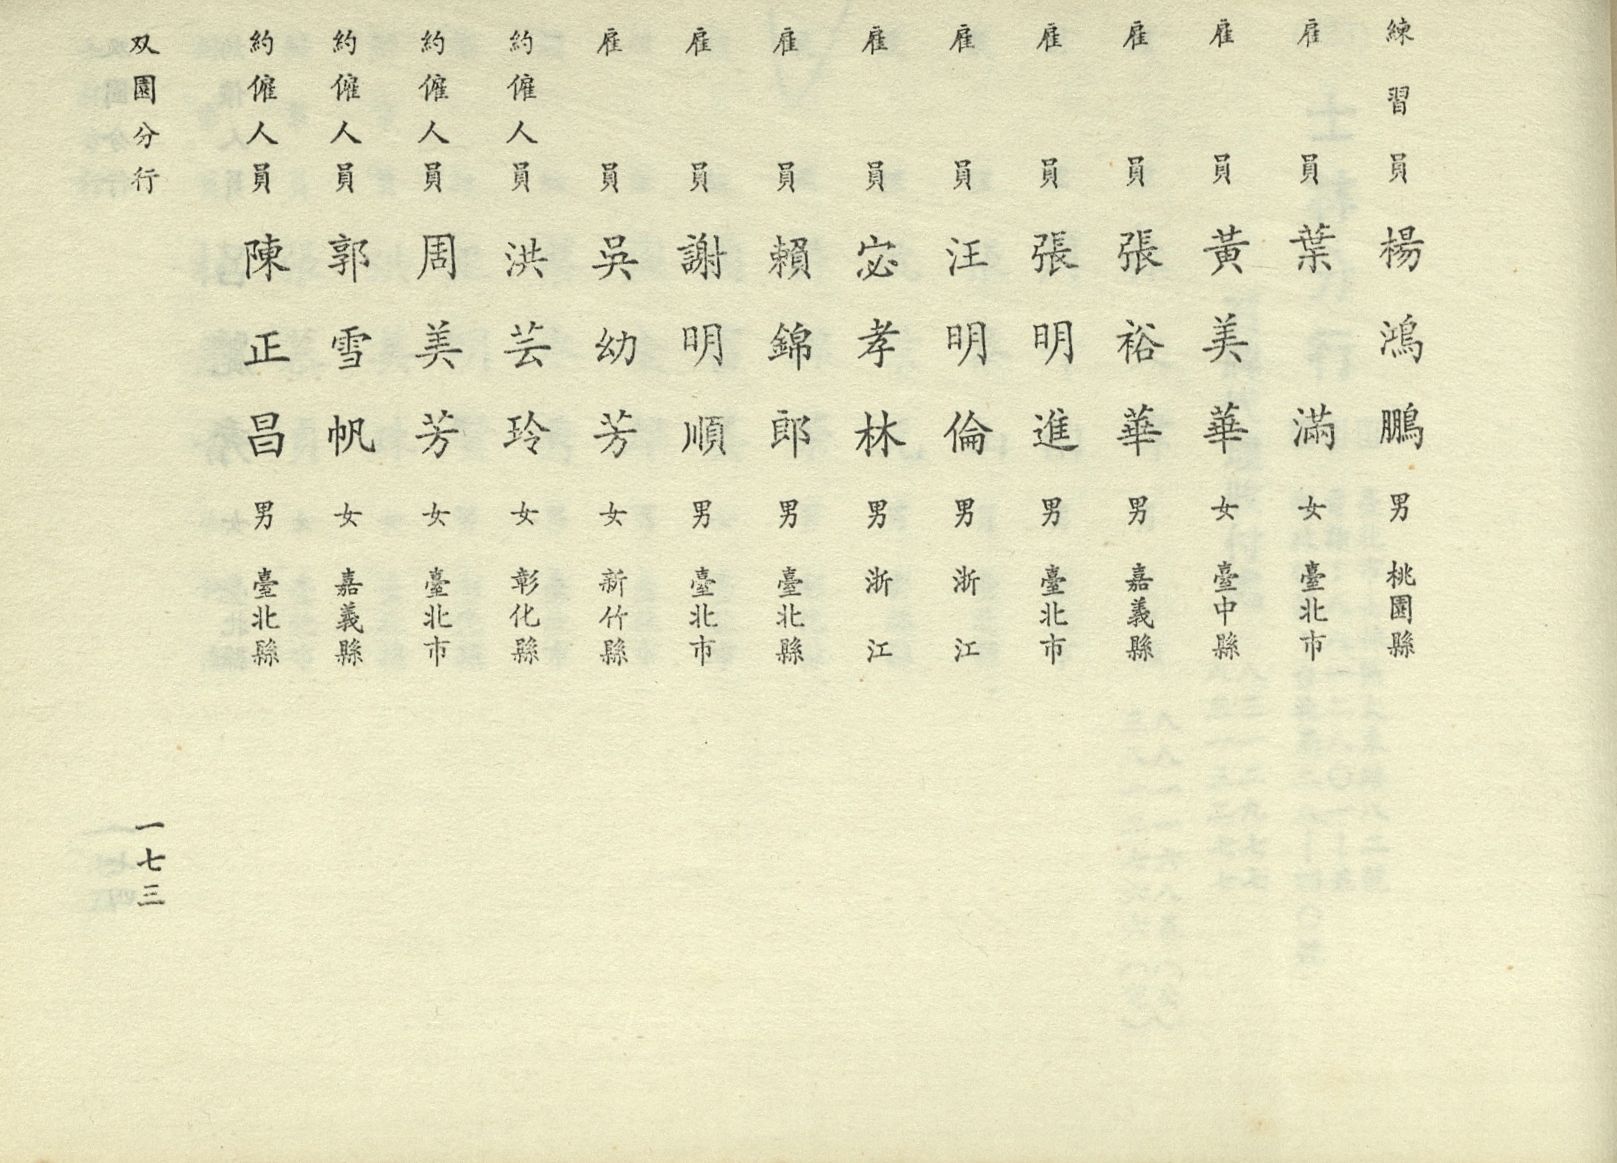 練習員 楊鴻鵬 男 桃園縣
雇員 葉滿 女 臺北市
雇員 黃美華 女 臺中縣
雇員 張裕華 男 嘉義縣
雇員 張明進 男 臺北市
雇員 汪明倫 男 浙江
雇員 宓孝林 男 浙江
雇員 賴錦郎 男 臺北縣
雇員 謝明順 男 臺北市
雇員 吳幼芳 女 新竹縣
約僱人員 洪芸玲 女 彰化縣
約僱人員 周美芳 女 臺北市
約僱人員 郭雪帆 女 嘉義縣
約僱人員 陳正昌 男 臺北縣
双園分行
一七三